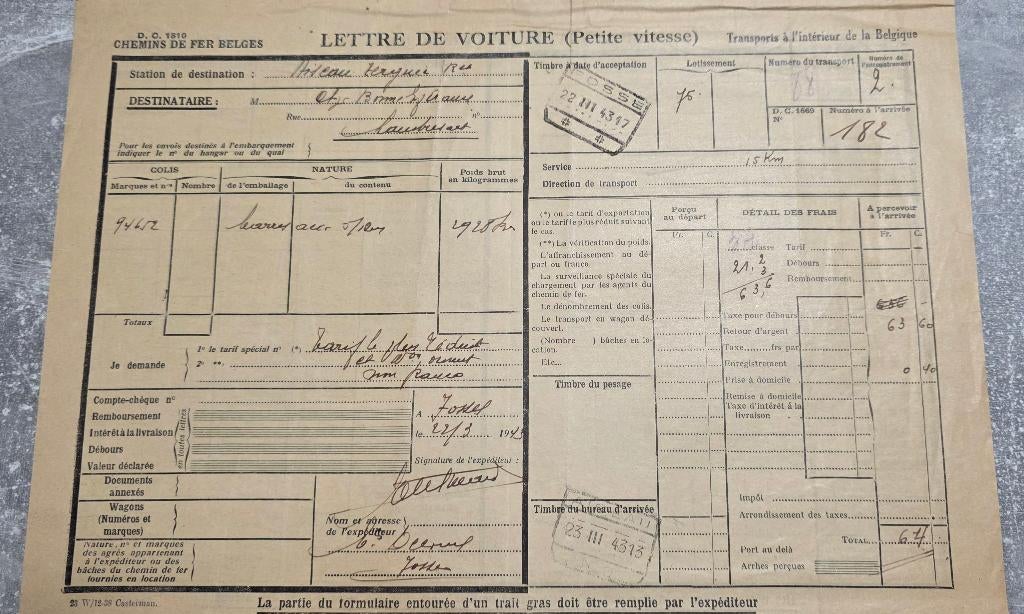 D. C. 1310
CHEMINS DE FER BELGES
LETTRE DE VOITURE (Petite vitesse)
Transports à l'intérieur de la Belgique
Station de destination :
DESTINATAIRE :
M
Rue
n°
Pour les envois destinés à l'embarquement
indiquer le n° du hangar ou du quai
COLIS
NATURE
Poids brut
en kilogrammes
Marques et n°s
Nombre
de l'emballage
du contenu
94652
1928 k
Totaux
Je demande
1° le tarif spécial n° (*) Tarif le plus réduit
2° **
et
non franco
Compte-chèque n°
Remboursement
Intérêt à la livraison
Débours
Valeur déclarée
en toutes lettres
A Fosses
le 22/3 1943
Signature de l'expéditeur :
Documents
annexés
Wagons
(Numéros et
marques)
Nature, n° et marques
des agrès appartenant
à l'expéditeur ou des
bâches du chemin de fer
fournies en location
Nom et adresse
de l'expéditeur
Fosses
Timbre à date d'acceptation
FOSSE
22 III 43 17
Lotissement
75.
Numéro du transport
Numéro de
l'enregistrement
2.
D. C. 1669
N°
Numéro à l'arrivée
182
Service
15 Km
Direction de transport
(*) ou le tarif d'exportation
ou le tarif le plus réduit suivant
le cas.
(**) La vérification du poids.
L'affranchissement au dé-
part ou franco.
La surveillance spéciale du
chargement par les agents du
chemin de fer.
Le dénombrement des colis.
Le transport en wagon dé-
couvert.
(Nombre ) bâches en lo-
cation.
Etc...
Perçu
au départ
Fr.
C.
DÉTAIL DES FRAIS
A percevoir
à l'arrivée
Fr.
C.
classe
Tarif
21.2
3
63,6
Débours
Remboursement
Taxe pour débours
63 60
Retour d'argent
Taxe frs par
Enregistrement
0 40
Prise à domicile
Remise à domicile
Taxe d'intérêt à la
livraison
Timbre du pesage
Timbre du bureau d'arrivée
23 III 43 13
Impôt
Arrondissement des taxes
TOTAL
64
Port au delà
Arches perçues
23 W/12-38 Casterman.
La partie du formulaire entourée d'un trait gras doit être remplie par l'expéditeur